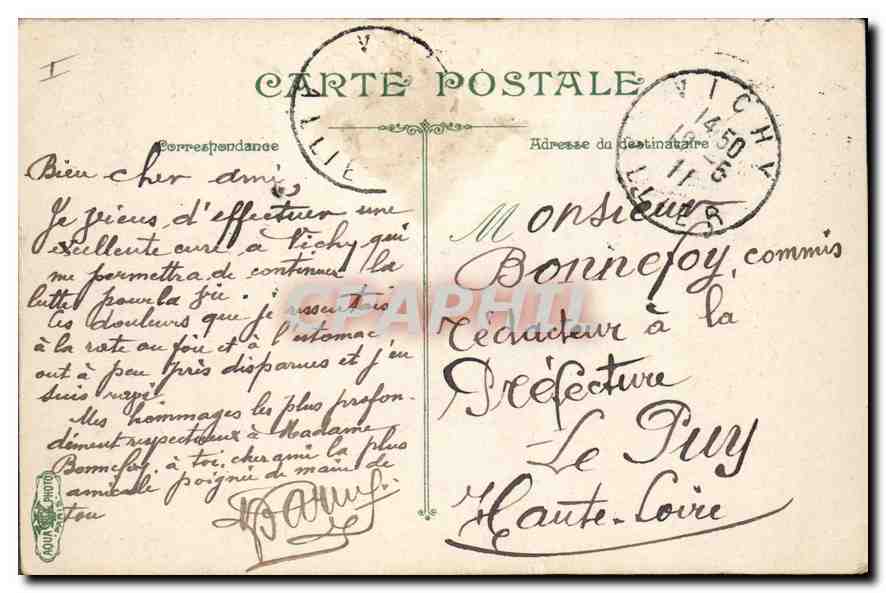 CARTE POSTALE
Correspondance
Adresse du destinataire
VICHY
14 50
11
ALLIER
I
Bien cher ami
Je viens d'effectuer une
excellente cure à Vichy qui
me permettra de continuer la
lutte pour la vie.
Les douleurs que je ressentais
à la rate au foie et à l'estomac
ont à peu près disparues et j'en
suis ravi
Mes hommages les plus profon-
dément respectueux à Madame
Bonnefoy, à toi, cher ami la plus
amicale poignée de main de
ton
Monsieur
Bonnefoy, commis
rédacteur à la
Préfecture
Le Puy
Haute-Loire
AQUA PHOTO
PARIS
CPAPHIL